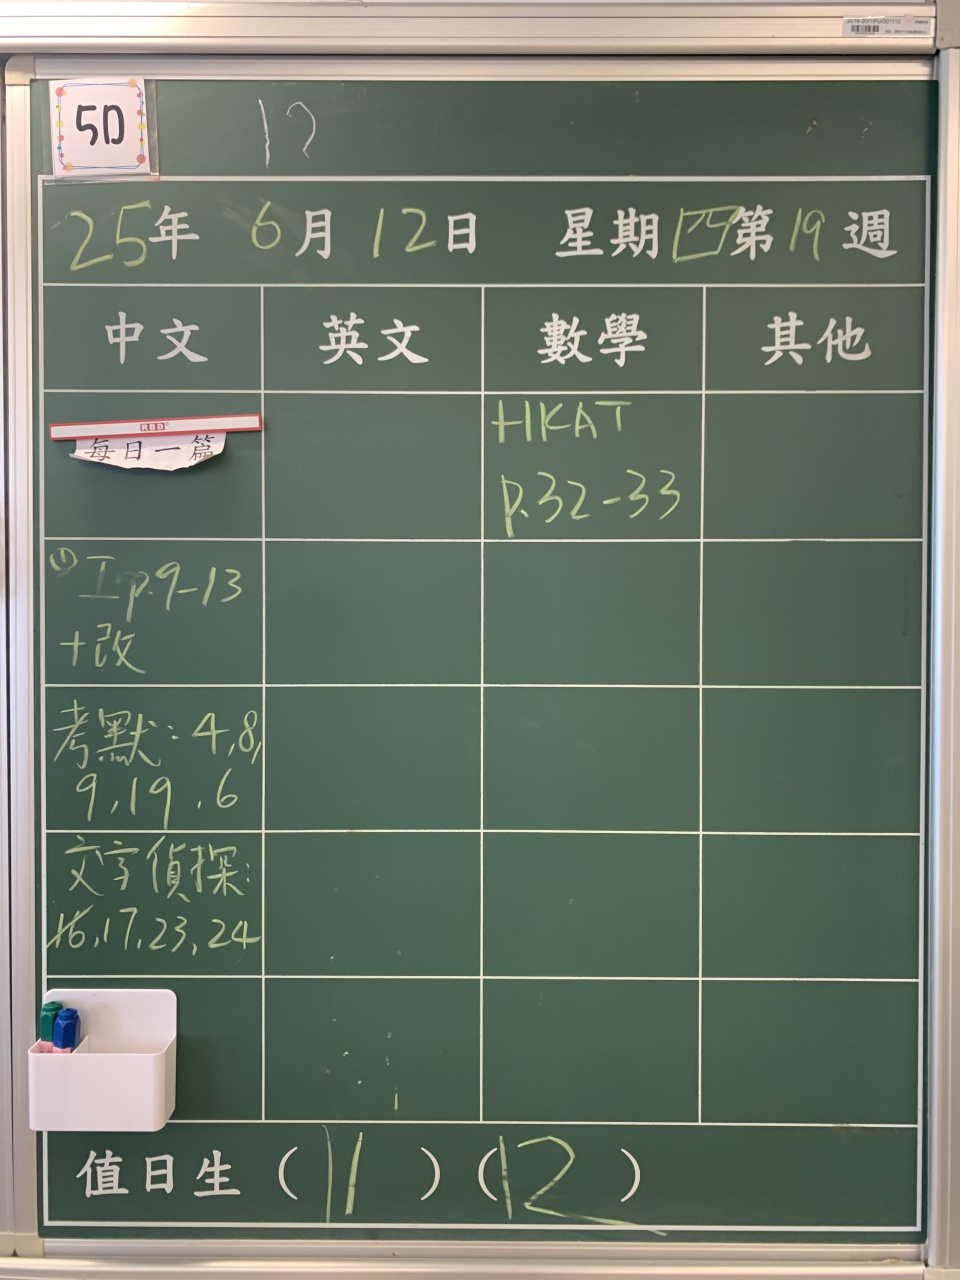 5D
12
25年 6月 12日 星期四第19週
中文 英文 數學 其他
RBD
每日一篇
HKAT
p.32-33
① 工p.9-13
+改
考默: 4,8,
9,19,6
文字偵探:
16,17,23,24
值日生 (11) (12)